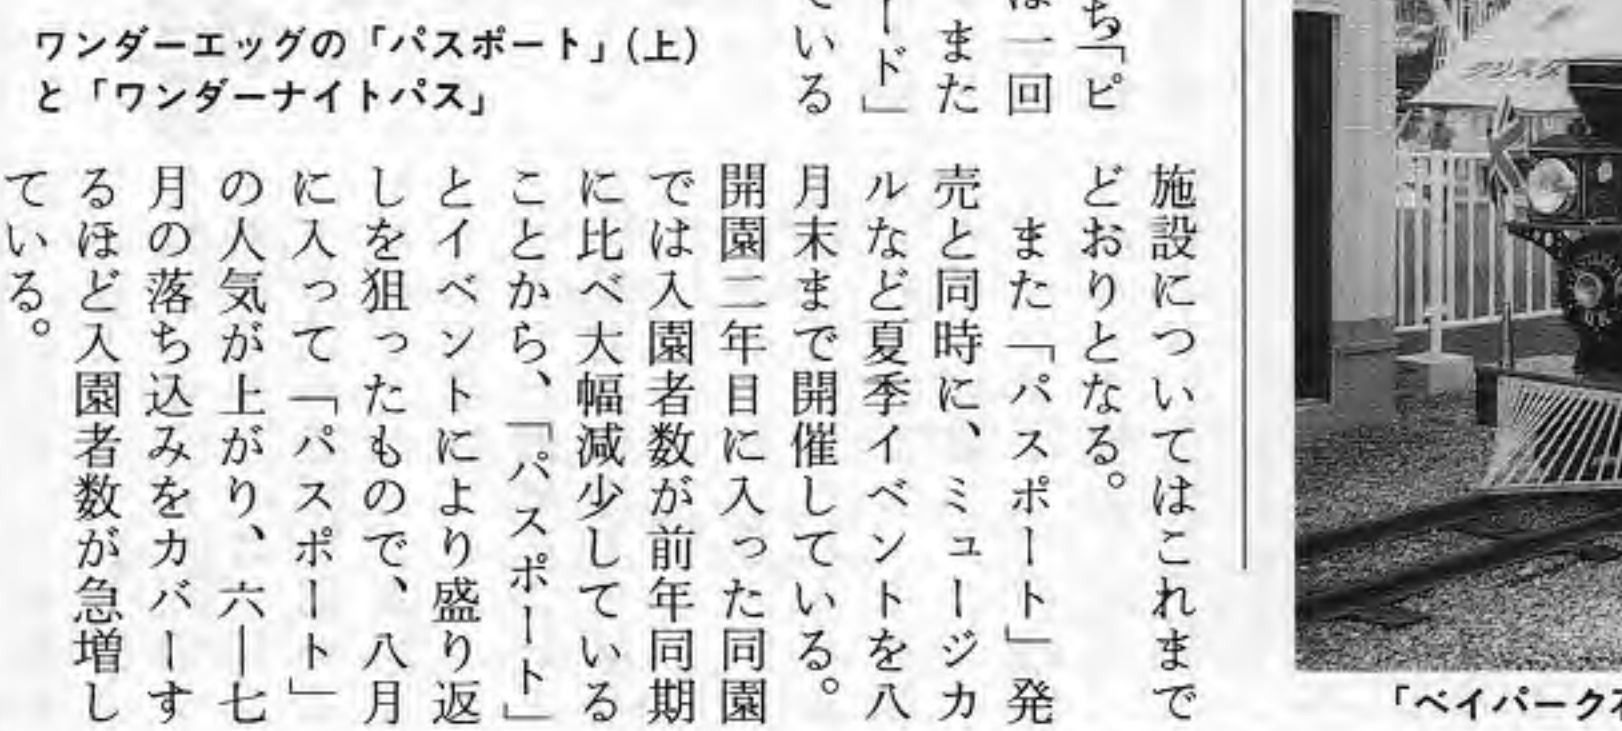 ち「ピ
は一回
また
ード」
ている
ワンダーエッグの「パスポート」(上)
と「ワンダーナイトパス」
施設についてはこれまで
どおりとなる。
また「パスポート」発
売と同時に、ミュージカ
ルなど夏季イベントを八
月末まで開催している。
開園二年目に入った同園
では入園者数が前年同期
に比べ大幅減少している
ことから、「パスポート」
とイベントにより盛り返
しを狙ったもので、八月
に入って「パスポート」
の人気が上がり、六—七
月の落ち込みをカバーす
るほど入園者数が急増し
ている。
「ベイパークス